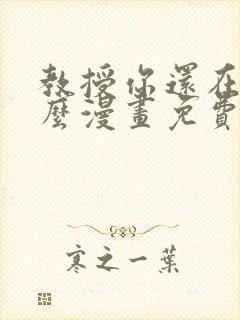 教授你還在
麼漫畫免費
寒之一葉